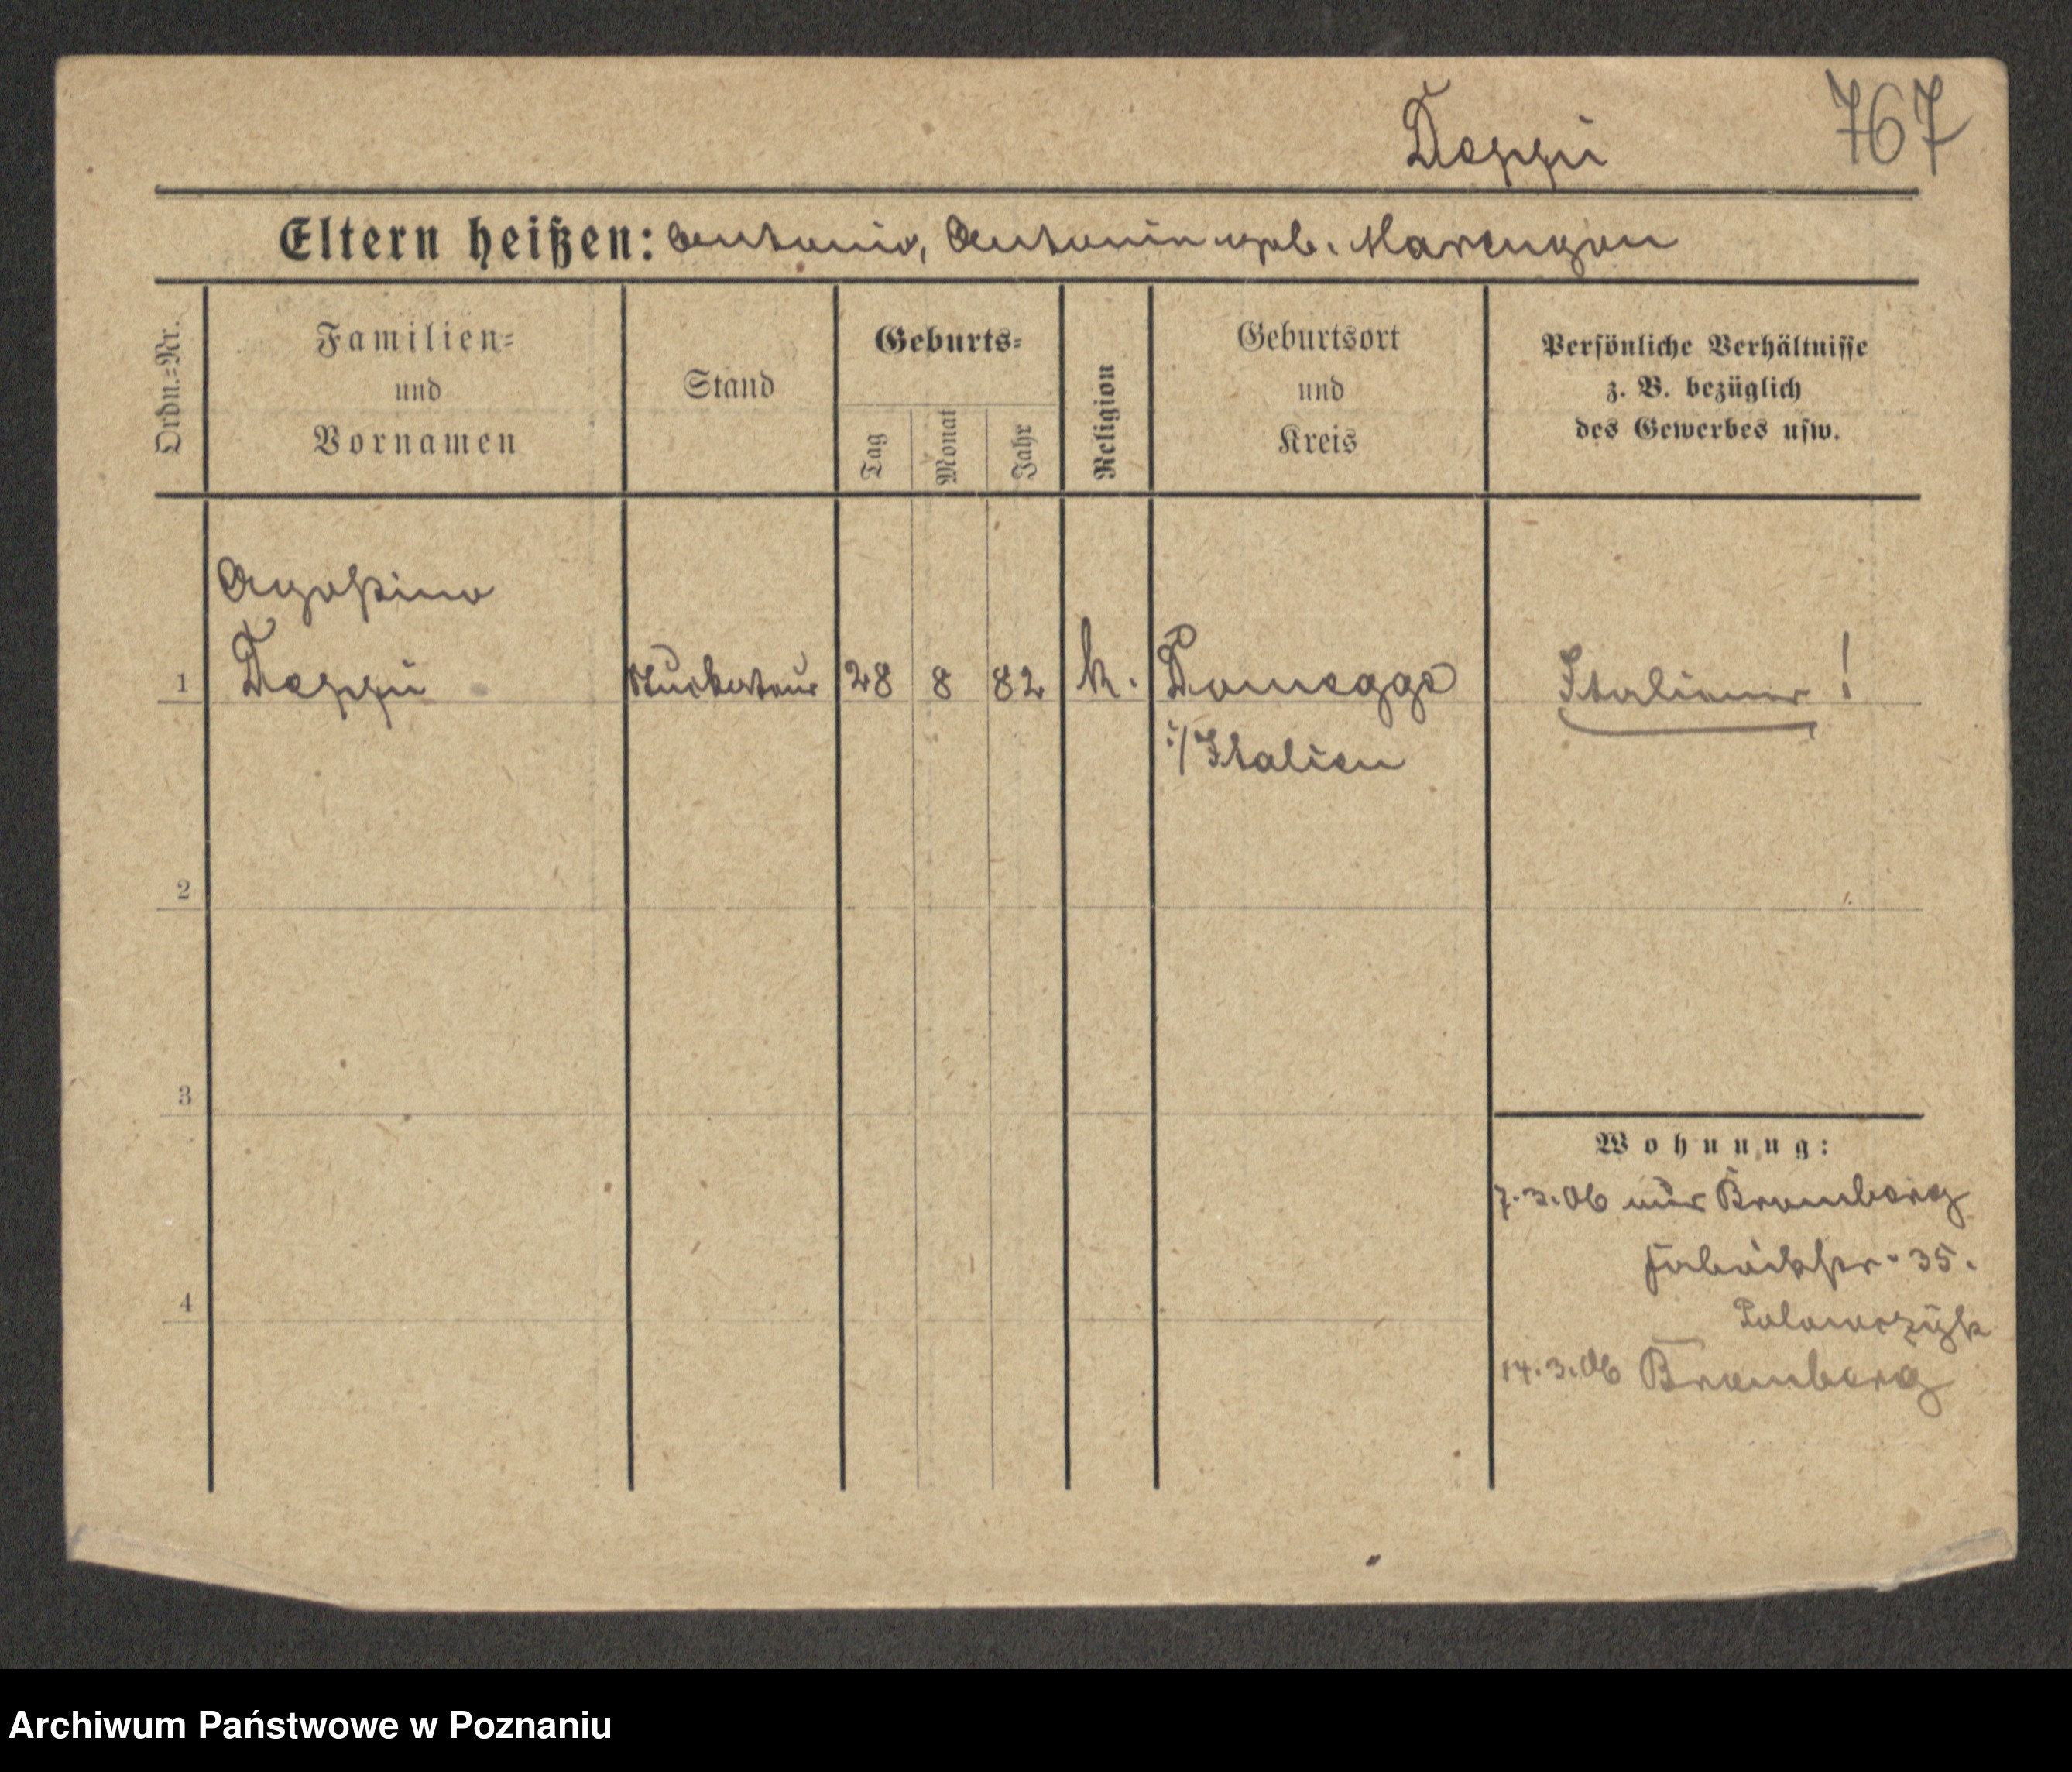 Deppi 767
Eltern heißen: Antonio, Antonia geb. Marengon
Ordn.=Nr.
Familien=
und
Vornamen
Stand
Geburts=
Tag
Monat
Jahr
Religion
Geburtsort
und
Kreis
Persönliche Verhältnisse
z. B. bezüglich
des Gewerbes usw.
Agostino
1 Deppi Stuckateur 28 8 82 k. Domegge Italiener!
i/Italien
2
3
Wohnung:
7.3.06 aus Bromberg
str. 35.
4
14.3.06 Bromberg
Archiwum Państwowe w Poznaniu